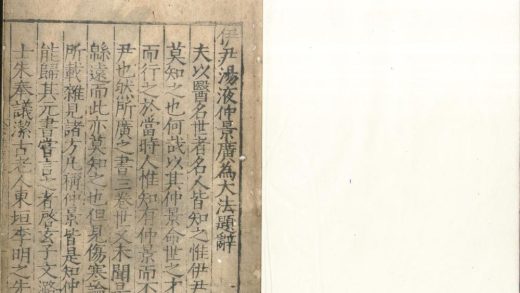 伊尹湯液仲景廣為大法題辭
夫以醫名世者名人皆知之惟伊尹
莫知之也何哉以其仲景命世之才
而行之於當時人惟知有仲景而不
尹也然所廣之書三卷世又未聞是
緜遠而此亦莫知之也但見傷寒論
所載雜見諸方凡稱仲景皆是知仲
能歸其元書者子文潞
士朱奉議潔古老人東垣李明之先